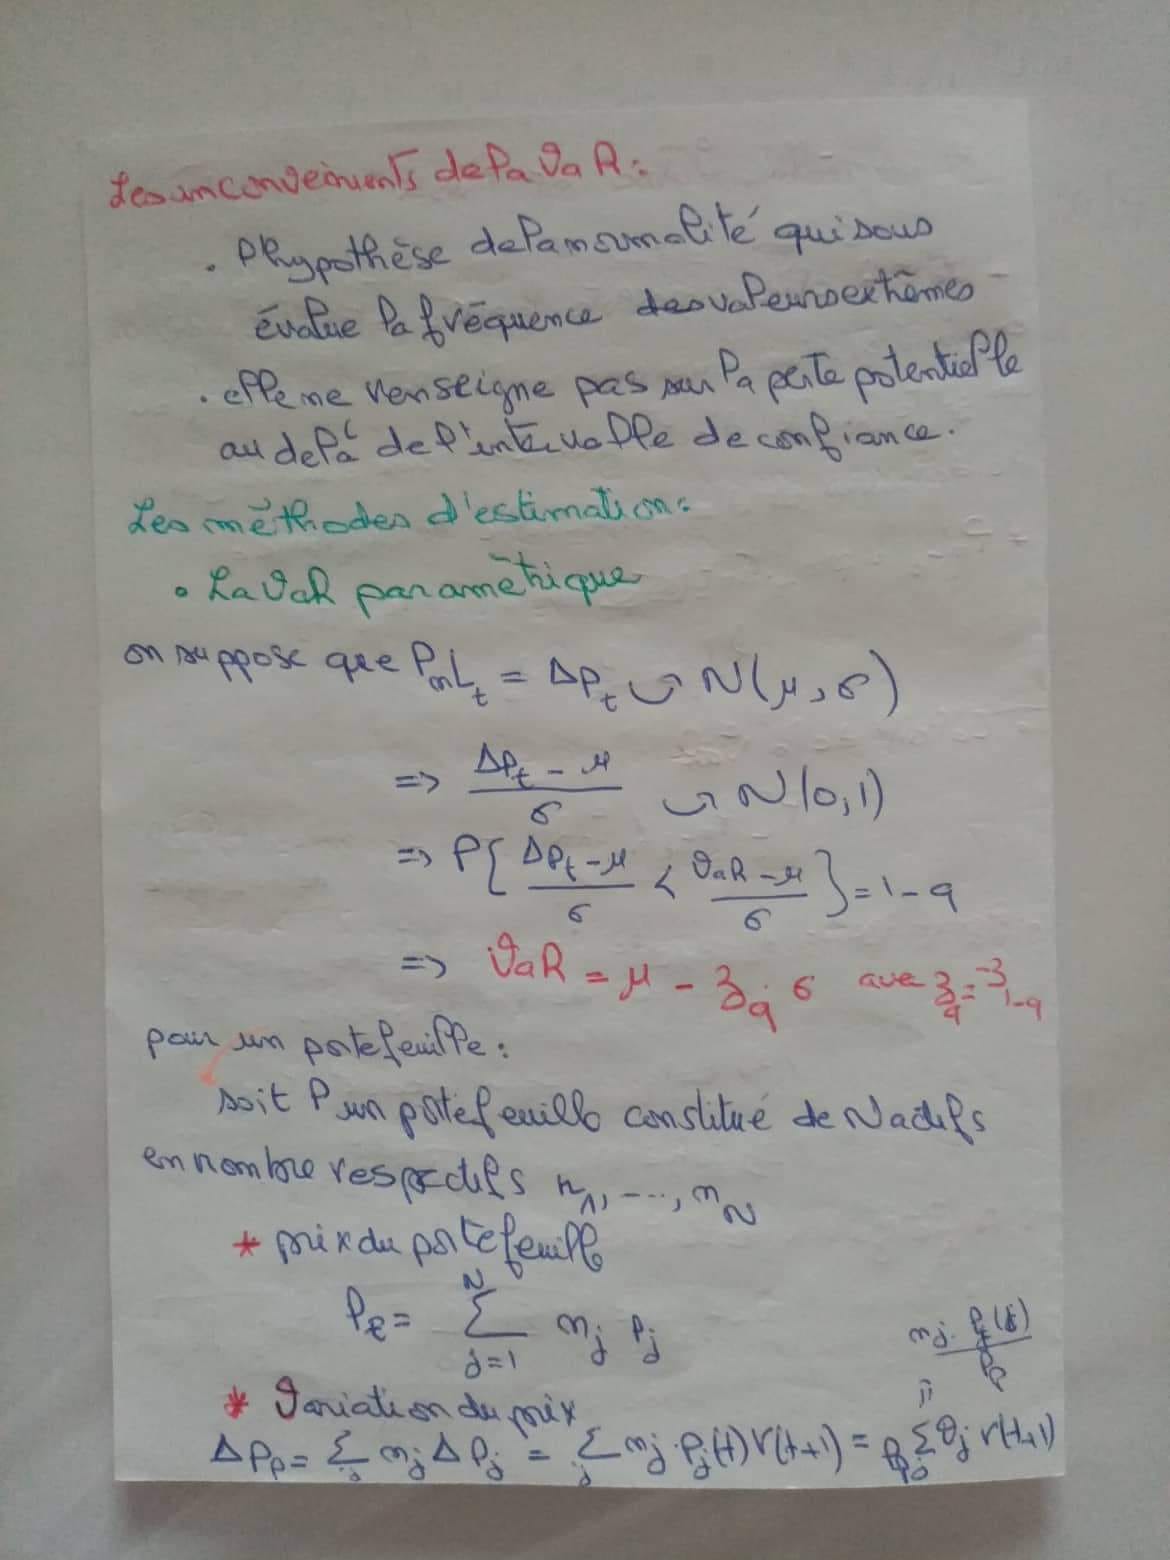 Les inconvénients de la VaR :
. l'hypothèse de la normalité qui sous
évalue la fréquence des valeurs extrêmes
. elle ne renseigne pas sur la perte potentielle
au delà de l'intervalle de confiance.
Les méthodes d'estimation :
• La VaR paramétrique
on suppose que PnL_t = ΔP_t ↪ N(μ, σ)
=> (ΔP_t - μ)/σ ↪ N(0,1)
=> P{ (ΔP_t - μ)/σ < (VaR - μ)/σ } = 1 - q
=> VaR = μ - z_q σ avec z_q = -z_{1-q}
pour un portefeuille :
soit P un portefeuille constitué de N actifs
en nombre respectifs n_1, ..., n_N
* prix du portefeuille
P_t = Σ_{j=1}^{N} n_j P_j
n_j . P_j(t) / P_p
* Variation du prix =
ΔP_p = Σ_j n_j ΔP_j = Σ_j n_j . P_j(t) r(t+1) = P_p Σ_j θ_j r(t+1)